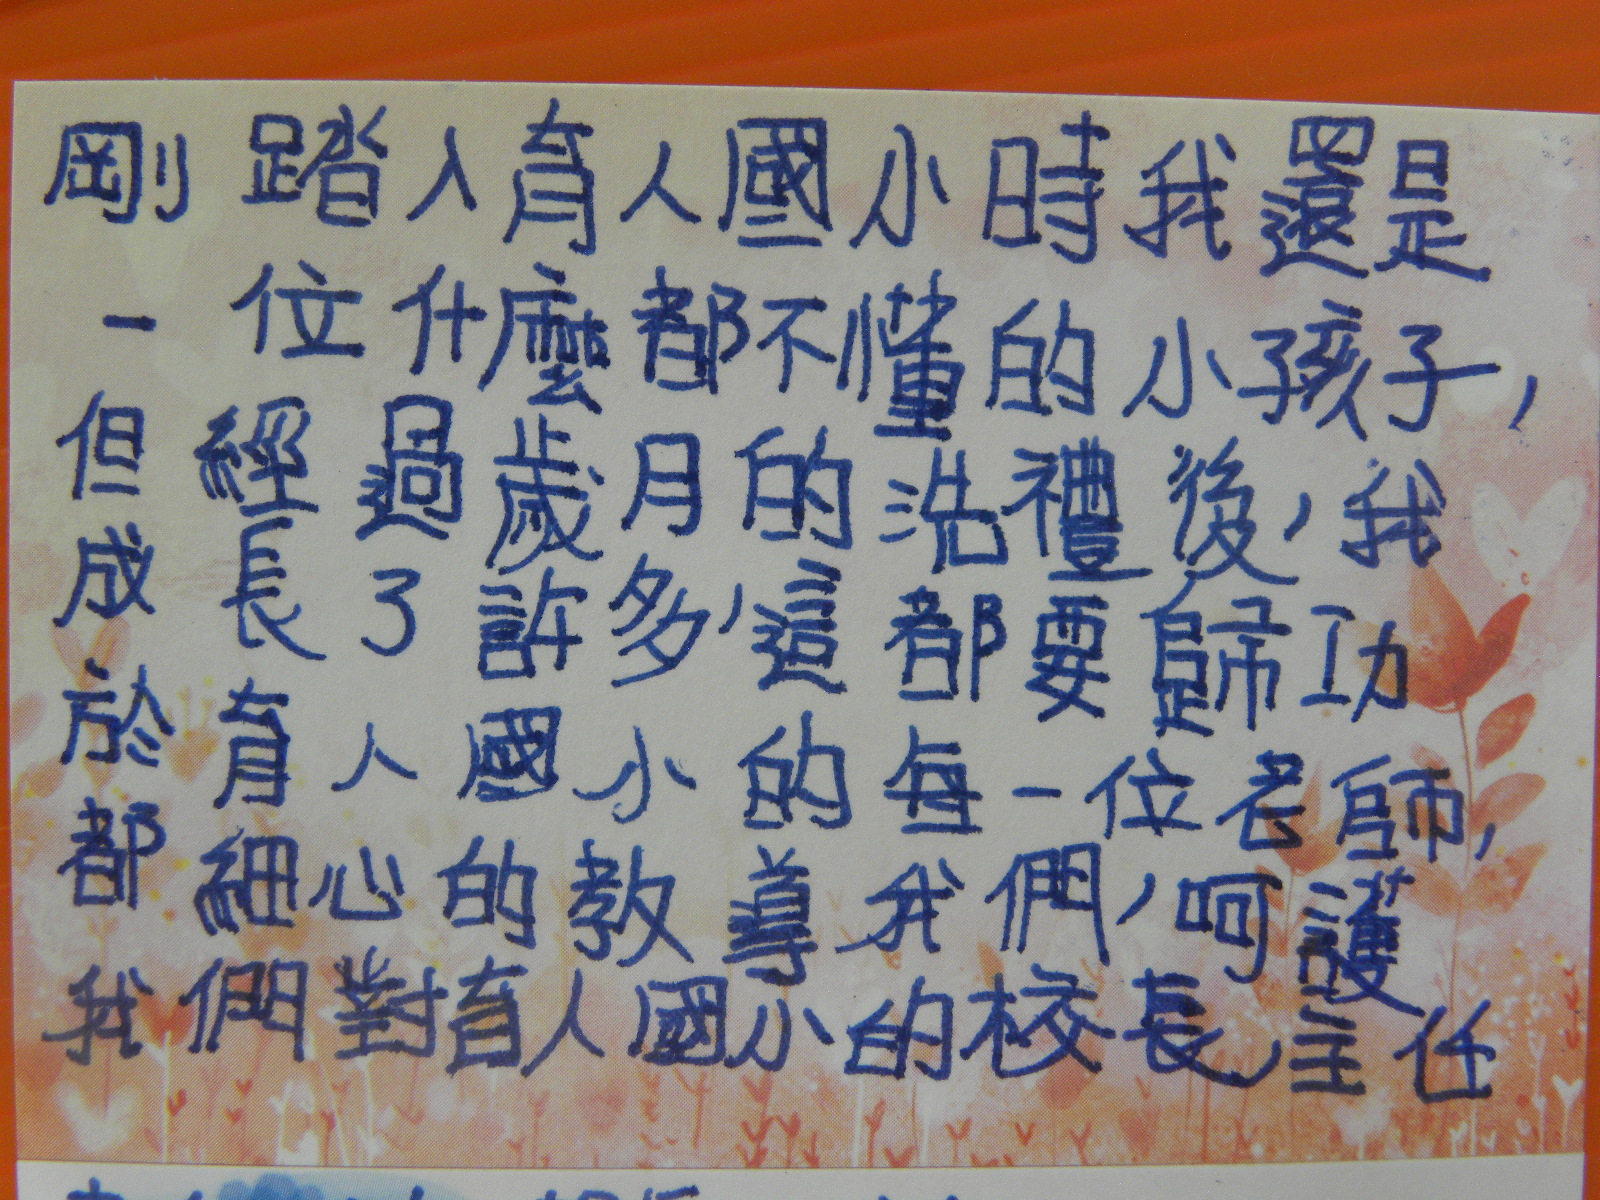 剛踏入育人國小時我還是
一位什麼都不懂的小孩子,
但經過歲月的洗禮後,我
成長了許多,這都要歸功
於育人國小的每一位老師,
都細心的教導我們,呵護
我們對育人國小的校長,主任